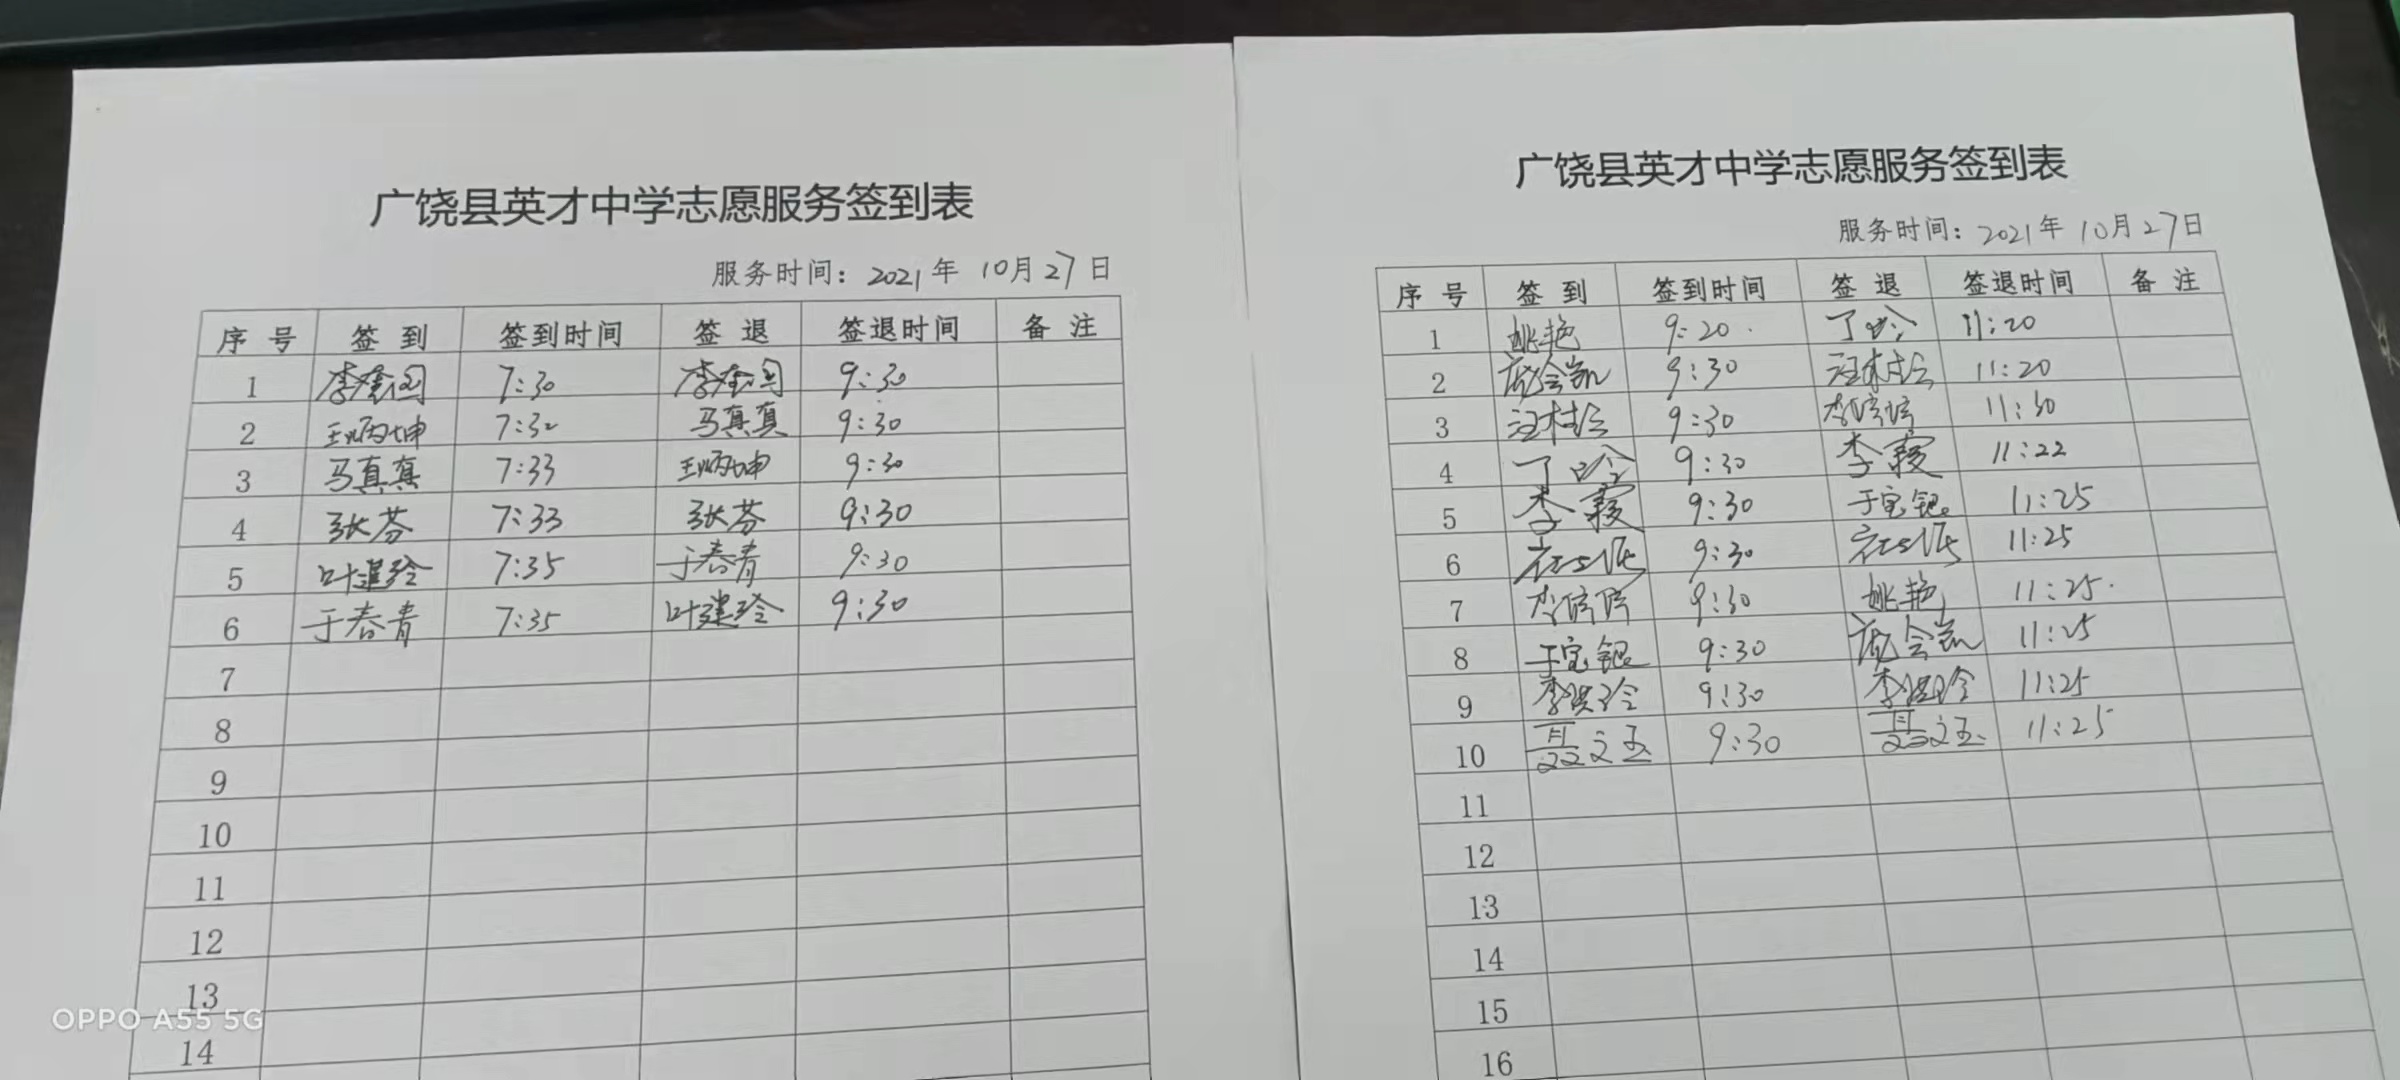 广饶县英才中学志愿服务签到表
服务时间：2021年 10月27日
序号 签到 签到时间 签退 签退时间 备注
1 7:30 9:30
2 7:32 马真真 9:30
3 马真真 7:33 9:30
4 张芬 7:33 张芬 9:30
5 叶建玲 7:35 于春青 9:30
6 于春青 7:35 叶建玲 9:30
7
8
9
10
11
12
13
14
OPPO A55 5G
广饶县英才中学志愿服务签到表
服务时间：2021年 10月27日
序号 签到 签到时间 签退 签退时间 备注
1 姚艳 9:20 丁玲 11:20
2 9:30 11:20
3 9:30 李倩倩 11:30
4 丁玲 9:30 李霞 11:22
5 李霞 9:30 于宝银 11:25
6 9:30 11:25
7 李倩倩 9:30 姚艳 11:25
8 于宝银 9:30 11:25
9 李洪玲 9:30 李洪玲 11:25
10 聂文玉 9:30 聂文玉 11:25
11
12
13
14
15
16